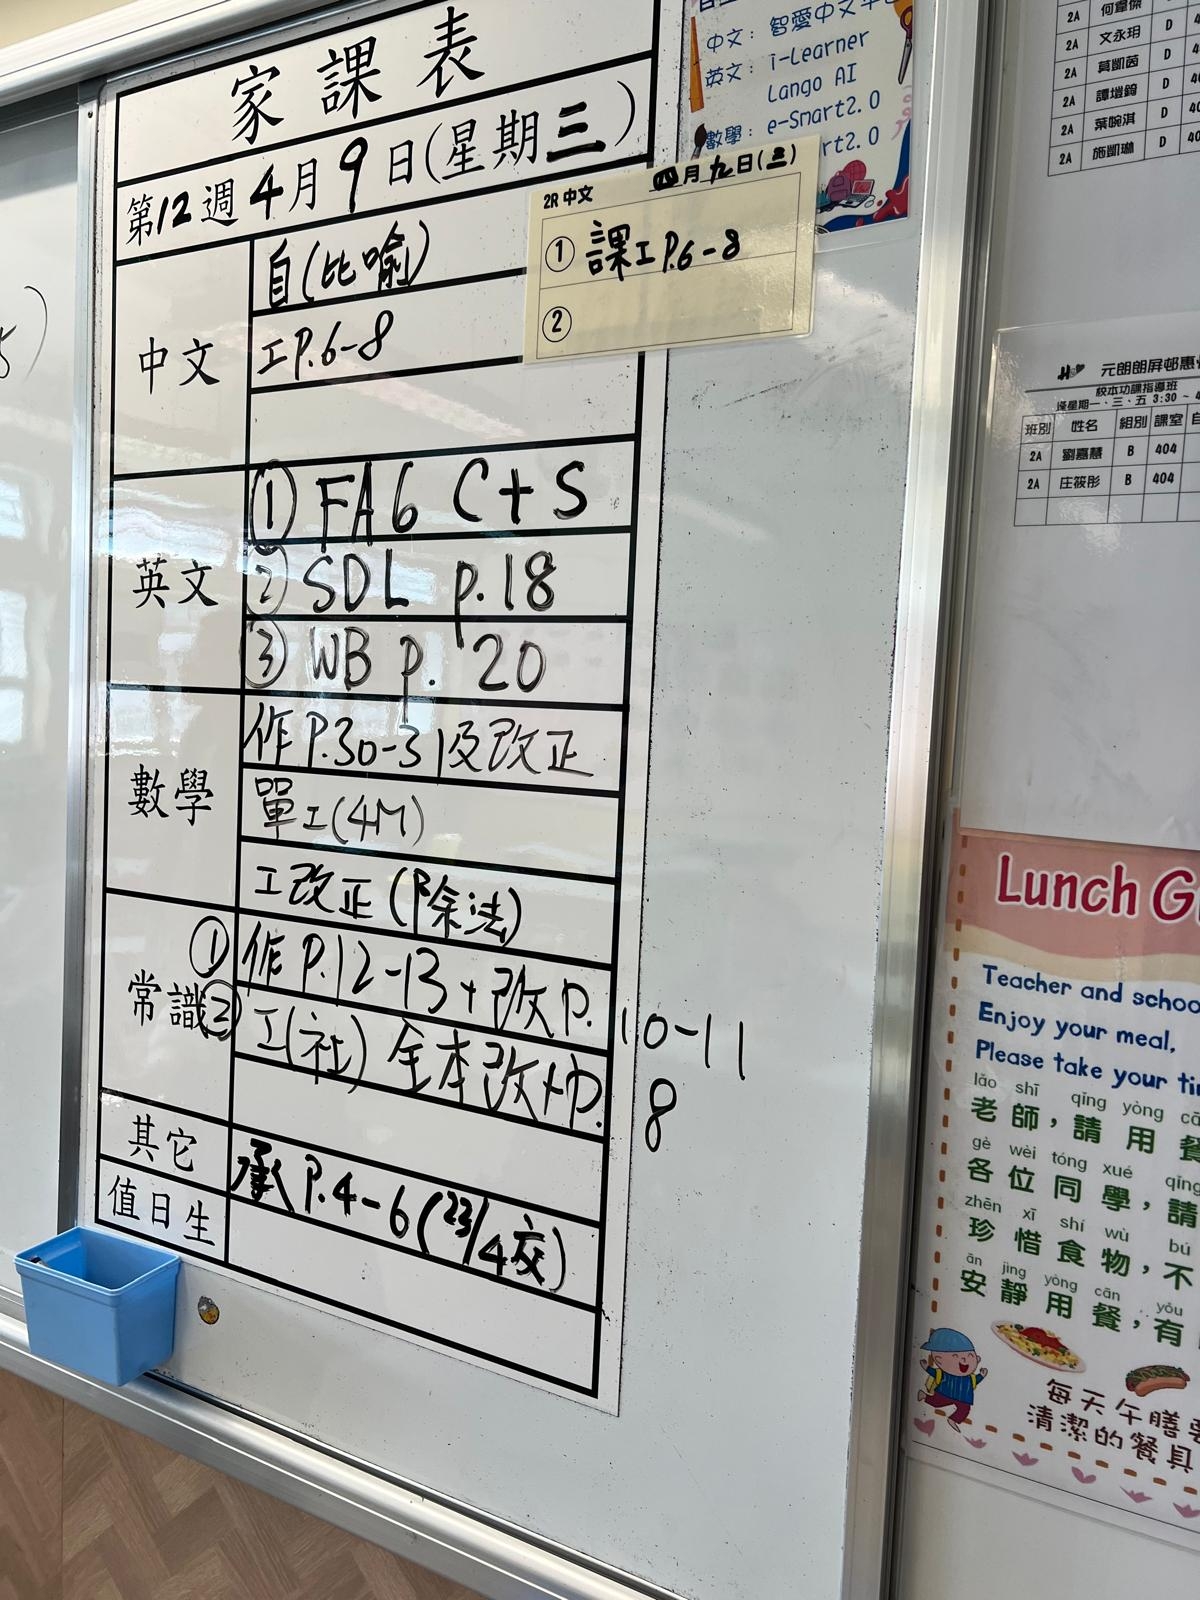 家課表
第12週4月9日(星期三)
中文
自(比喻)
工P.6-8
英文
① FA6 C+S
② SDL p.18
③ WB p. 20
數學
作P.30-31及改正
單工(4M)
工改正(除法)
常識
① 作P.12-13+改P.10-11
② 工(社)全本改+P.8
其它
承P.4-6(23/4交)
值日生
2R中文
四月九日(三)
① 課工P.6-8
②
中文：智愛中文平
英文：i-Learner
Lango AI
數學：e-Smart2.0
rt2.0
2A 何韋傑
2A 文永玥 D
2A 莫凱茵 D
2A 譚塏錡 D
2A 葉晼淇 D
2A 施凱琳 D
元朗朗屏邨惠
校本功課指導班
逢星期一、三、五 3:30 ~
班別 姓名 組別 課室
2A 劉嘉慧 B 404
2A 庄筱彤 B 404
Lunch G
Teacher and schoo
Enjoy your meal,
Please take your ti
lǎo shī qǐng yòng cā
老師，請用餐
gè wèi tóng xué qǐng
各位同學，請
zhēn xī shí wù bú
珍惜食物，不
ān jìng yòng cān yǒu
安靜用餐，有
每天午膳要
清潔的餐具